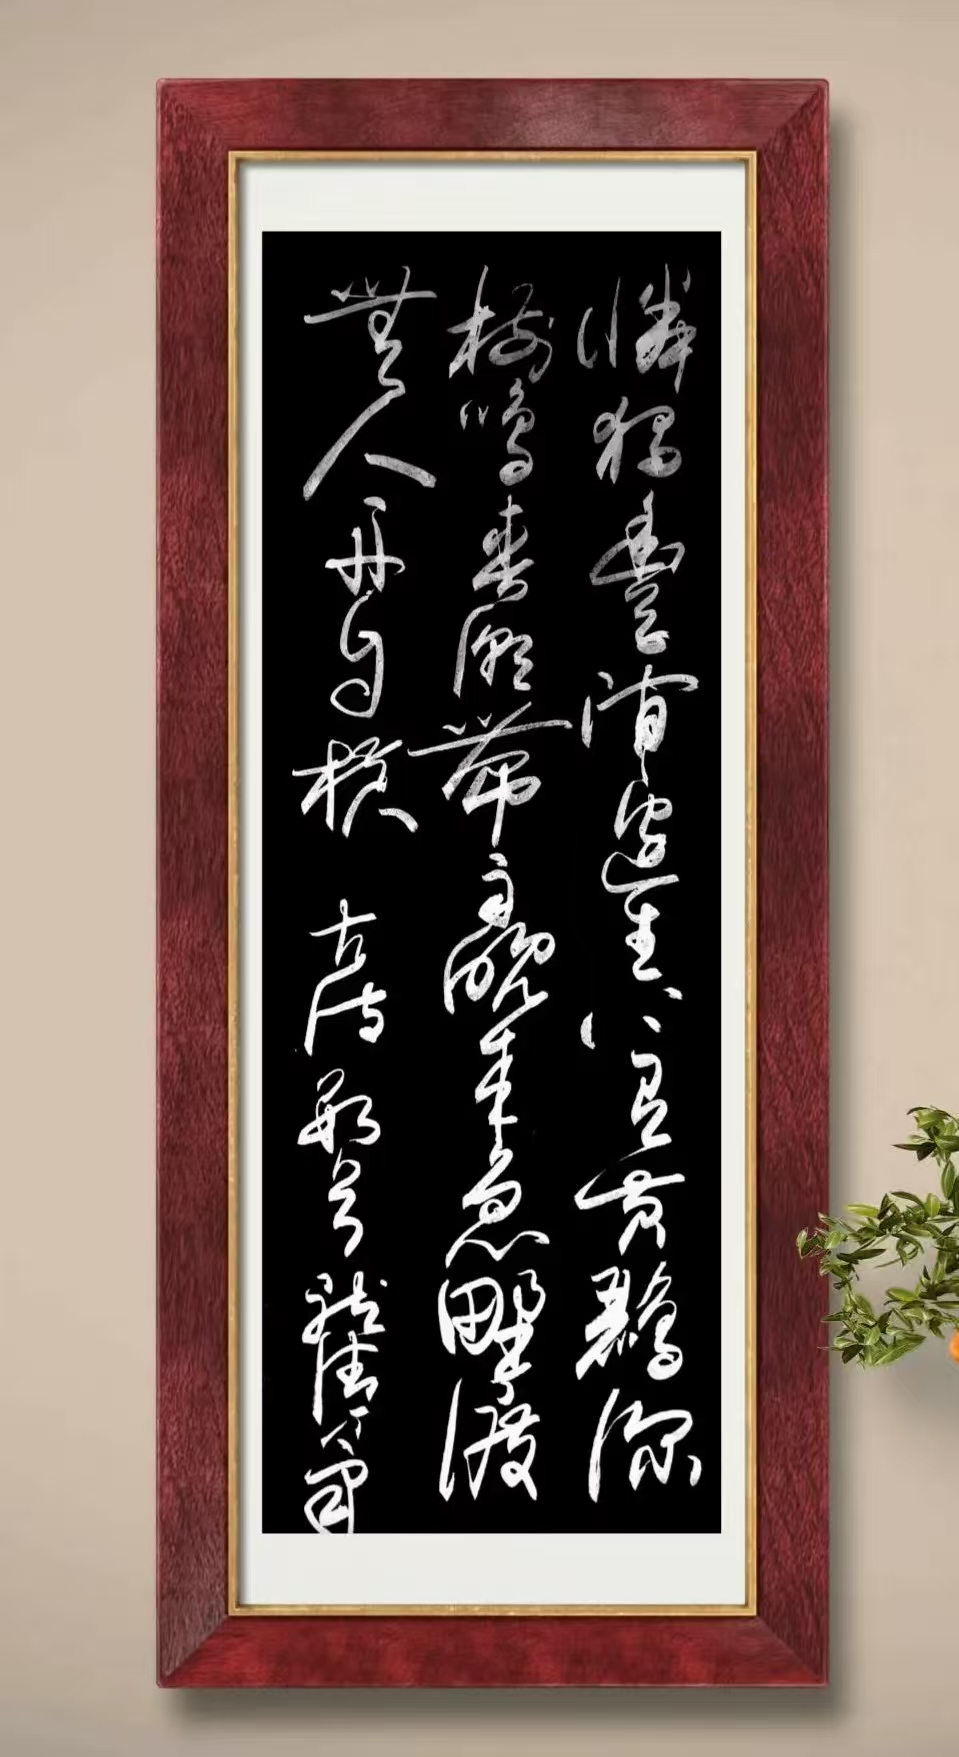 憐獨幽草澗邊生上有黄鸝深
樹鳴春潮帶雨晚來急野渡
無人舟自横 古詩